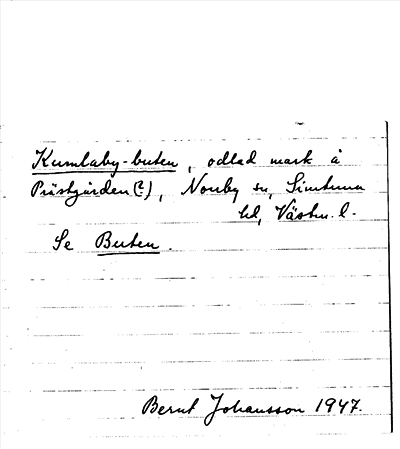 Kumlaby-buten, odlad mark å
Prästgården(?), Nouby sn, Simtuna
hd, Västm. l.
Se Buten.
Bernt Johansson 1947.